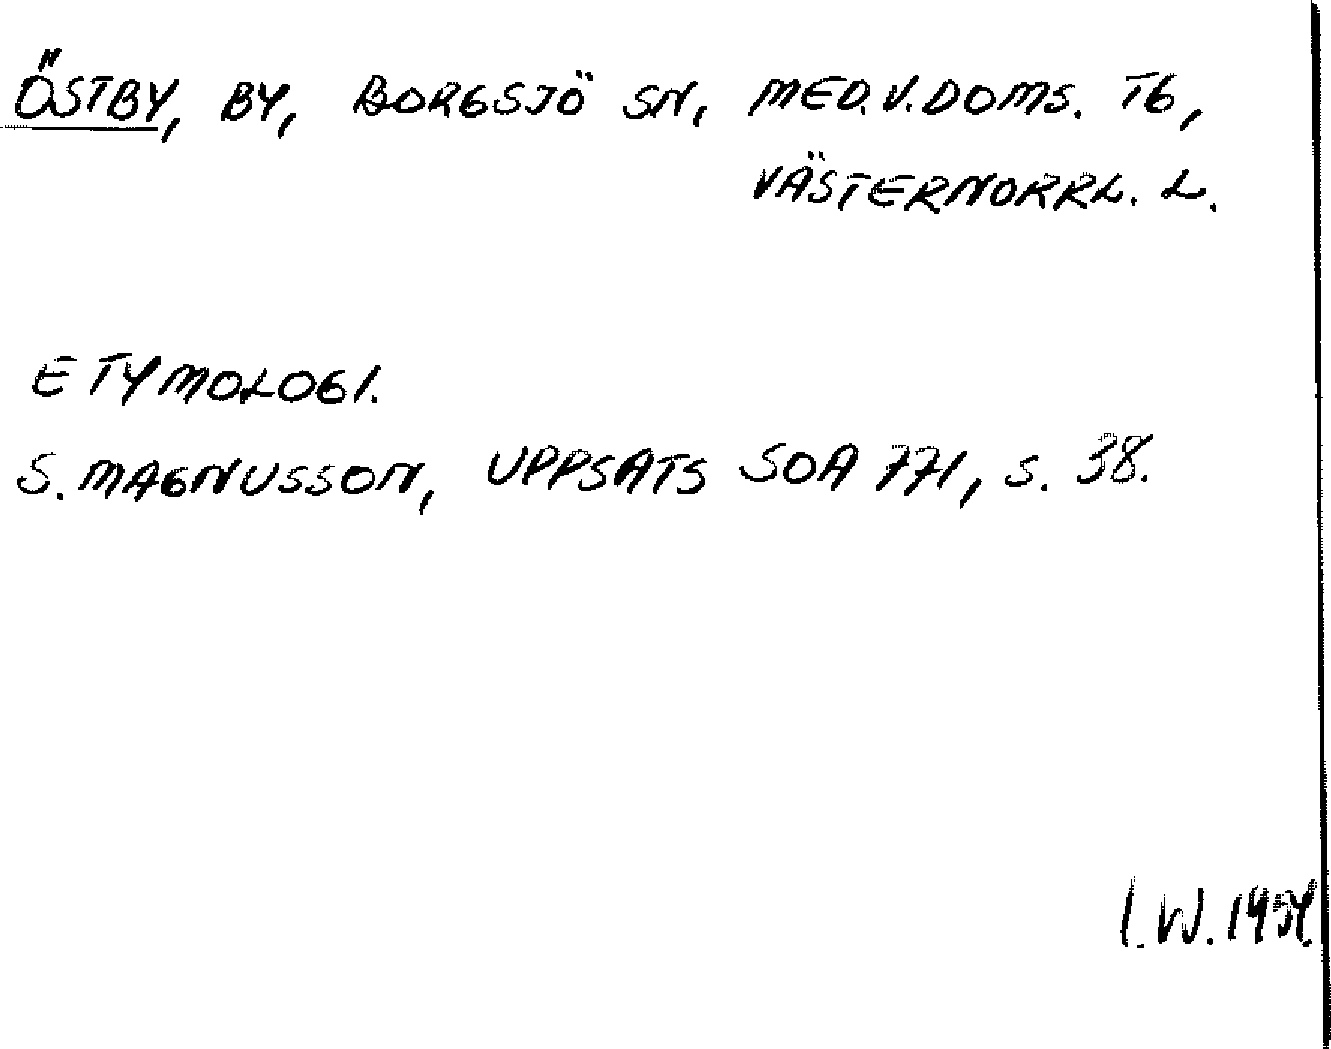 ÖSTBY, BY, BORGSJÖ SN, MED.V.DOMS. TG,
VÄSTERNORRL. L.
ETYMOLOGI.
S. MAGNUSSON, UPPSATS SOA 771, S. 38.
I.W.